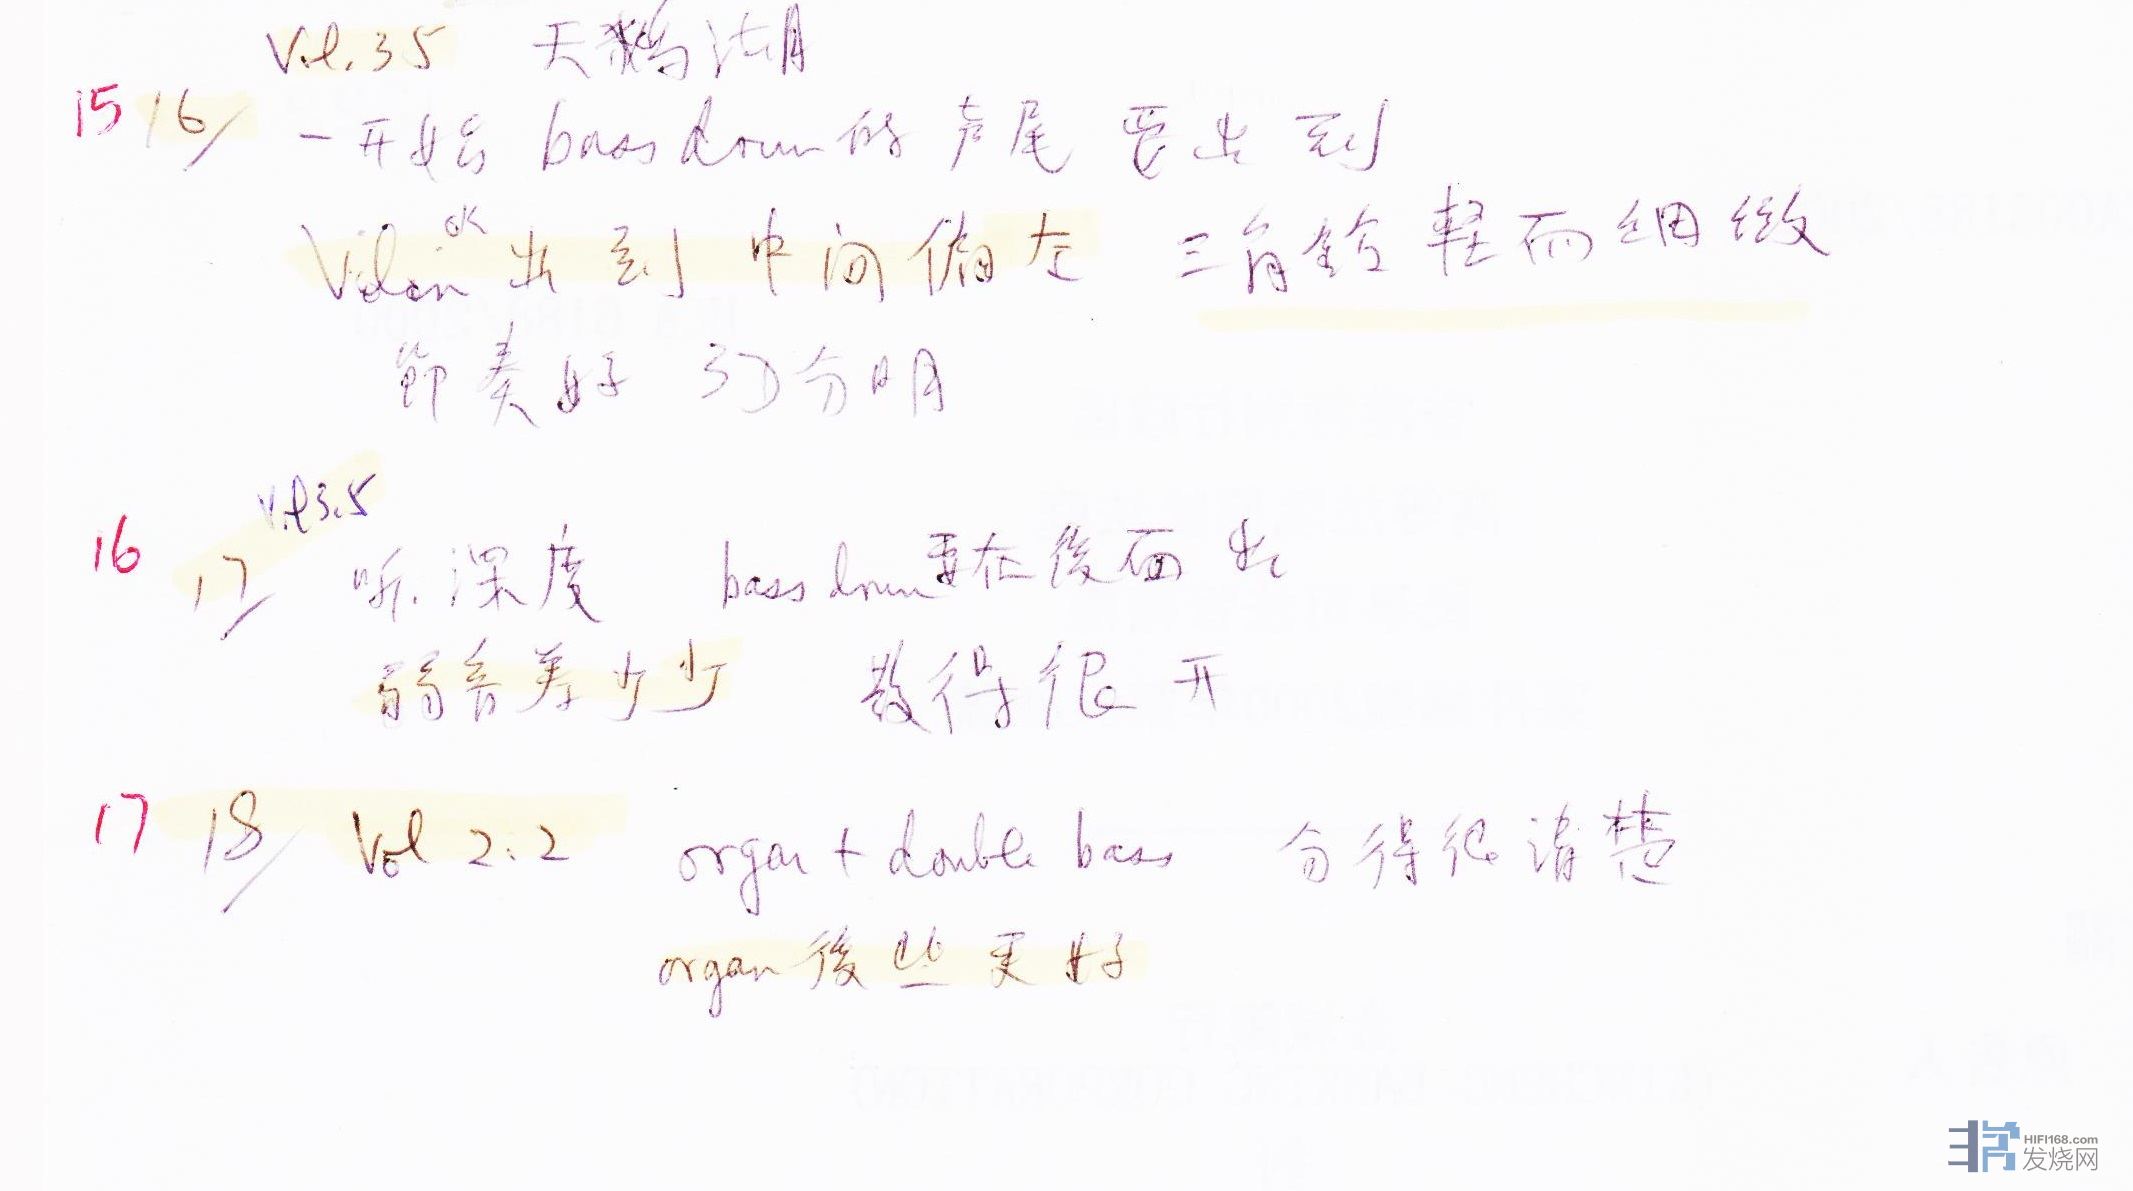 Vol. 35 天鹅湖
15 16/ 一开始 bass drum 的声尾要出到
Violin ok 出到中间偏左 三角铃 軽而細緻
節奏好 3D分明
16 17/ Vol 3.5 听深度 bass drum 要在後面出
弱音差少少 散得很开
17 18/ Vol 2.2 organ + double bass 分得很清楚
organ 後些更好
HIFI168.com
发烧网